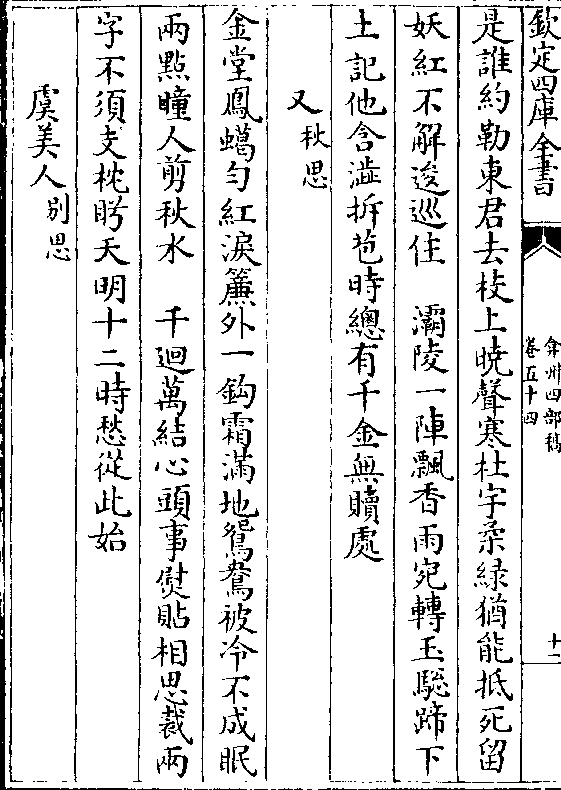 欽定四庫全書
弇州四部稿
卷五十四
十二
是誰約勒東君去枝上曉聲寒杜宇柔緑猶能抵死留
妖紅不解逡巡住　灞陵一陣飄香雨宛轉玉驄蹄下
土記他含澁拆苞時總有千金無贖處
又秋思
金堂鳳蠟勻紅淚簾外一鈎霜滿地鴛鴦被冷不成眠
兩點瞳人剪秋水　千迴萬結心頭事熨貼相思裁兩
字不須支枕盻天明十二時愁從此始
虞美人別思